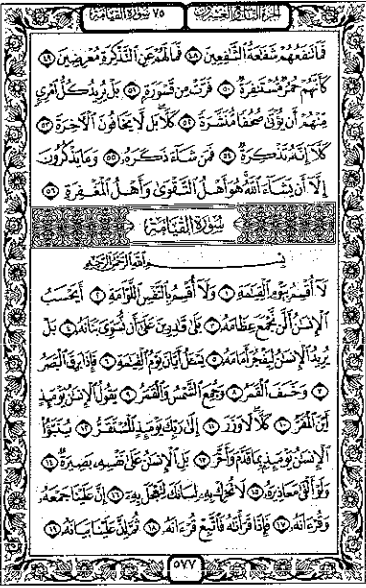 الجزء التاسع والعشرون ٧٥ سورة القيامة
فَمَا تَنفَعُهُمْ شَفَاعَةُ الشَّافِعِينَ ٤٨ فَمَا لَهُمْ عَنِ التَّذْكِرَةِ مُعْرِضِينَ ٤٩
كَأَنَّهُمْ حُمُرٌ مُّسْتَنفِرَةٌ ٥٠ فَرَّتْ مِن قَسْوَرَةٍ ٥١ بَلْ يُرِيدُ كُلُّ امْرِئٍ
مِّنْهُمْ أَن يُؤْتَىٰ صُحُفًا مُّنَشَّرَةً ٥٢ كَلَّا بَل لَّا يَخَافُونَ الْآخِرَةَ ٥٣
كَلَّا إِنَّهُ تَذْكِرَةٌ ٥٤ فَمَن شَاءَ ذَكَرَهُ ٥٥ وَمَا يَذْكُرُونَ
إِلَّا أَن يَشَاءَ اللَّهُ هُوَ أَهْلُ التَّقْوَىٰ وَأَهْلُ الْمَغْفِرَةِ ٥٦
سُورَةُ الْقِيَامَةِ
بِسْمِ اللَّهِ الرَّحْمَٰنِ الرَّحِيمِ
لَا أُقْسِمُ بِيَوْمِ الْقِيَامَةِ ١ وَلَا أُقْسِمُ بِالنَّفْسِ اللَّوَّامَةِ ٢ أَيَحْسَبُ
الْإِنسَانُ أَلَّن نَّجْمَعَ عِظَامَهُ ٣ بَلَىٰ قَادِرِينَ عَلَىٰ أَن نُّسَوِّيَ بَنَانَهُ ٤ بَلْ
يُرِيدُ الْإِنسَانُ لِيَفْجُرَ أَمَامَهُ ٥ يَسْأَلُ أَيَّانَ يَوْمُ الْقِيَامَةِ ٦ فَإِذَا بَرِقَ الْبَصَرُ
٧ وَخَسَفَ الْقَمَرُ ٨ وَجُمِعَ الشَّمْسُ وَالْقَمَرُ ٩ يَقُولُ الْإِنسَانُ يَوْمَئِذٍ
أَيْنَ الْمَفَرُّ ١٠ كَلَّا لَا وَزَرَ ١١ إِلَىٰ رَبِّكَ يَوْمَئِذٍ الْمُسْتَقَرُّ ١٢ يُنَبَّأُ
الْإِنسَانُ يَوْمَئِذٍ بِمَا قَدَّمَ وَأَخَّرَ ١٣ بَلِ الْإِنسَانُ عَلَىٰ نَفْسِهِ بَصِيرَةٌ ١٤
وَلَوْ أَلْقَىٰ مَعَاذِيرَهُ ١٥ لَا تُحَرِّكْ بِهِ لِسَانَكَ لِتَعْجَلَ بِهِ ١٦ إِنَّ عَلَيْنَا جَمْعَهُ
وَقُرْآنَهُ ١٧ فَإِذَا قَرَأْنَاهُ فَاتَّبِعْ قُرْآنَهُ ١٨ ثُمَّ إِنَّ عَلَيْنَا بَيَانَهُ ١٩
٥٧٧